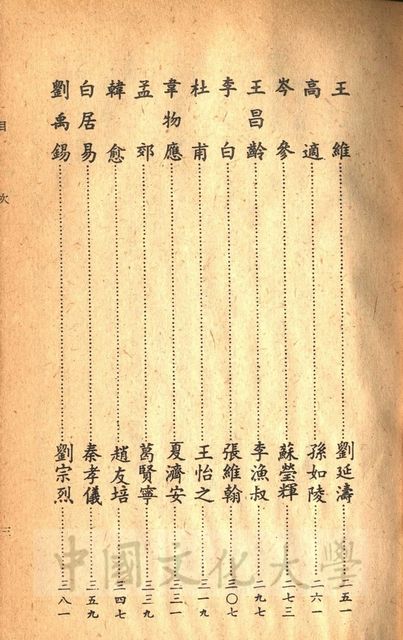 王維 劉延濤 二五一
高適 孫如陵 二六一
岑參 蘇瑩輝 二七三
王昌齡 李漁叔 二九七
李白 張維翰 三〇七
杜甫 王怡之 三一九
韋物應 夏濟安 三三一
孟郊 葛賢寧 三三九
韓愈 趙友培 三四七
白居易 秦孝儀 三五九
劉禹錫 劉宗烈 三八一
目次
中國文化大學